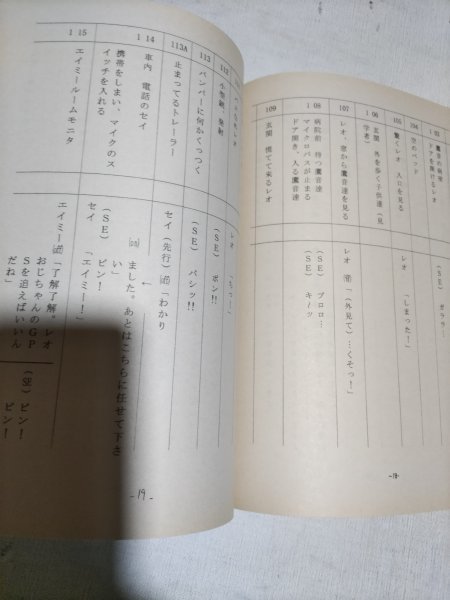 103
鷹音の病室
ドアを開けるレオ
(SE) ガララ…
104
空のベッド
105
驚くレオ 入口を見る
レオ 「しまった！」
106
玄関 外を歩く子供達（見学者）
107
レオ、窓から鷹音達を見る
レオ 「（外見て）…くそっ！」
108
病院前 待つ鷹音達
マイクロバスが止まる
ドア開き、入る鷹音達
(SE) ブロロ…
(SE) キーッ
109
玄関 慌てて来るレオ
-18-
レオ 「ちっ…」
112
発射
(SE) ボン!!
113
バンパーに何かくっつく
(SE) バシッ!!
113A
止まってるトレーラー
セイ（先行）「わかり
114
車内 電話のセイ
ました。あとはこちらに任せて下さい」
携帯をしまい、マイクのスイッチを入れる
(SE) ピン！
セイ 「エイミー！」
115
エイミールームモニタ
エイミー 「了解了解。レオおじちゃんのGPSを追えばいいんだね」
(SE) ピン！
ピン！
-19-